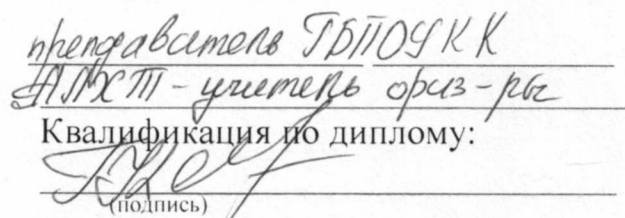 преподаватель ГБПОУ КК
АЛХТ - учитель физ-ры
Квалификация по диплому:
(подпись)